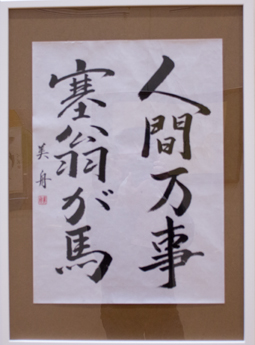 人間万事
塞翁が馬
美舟